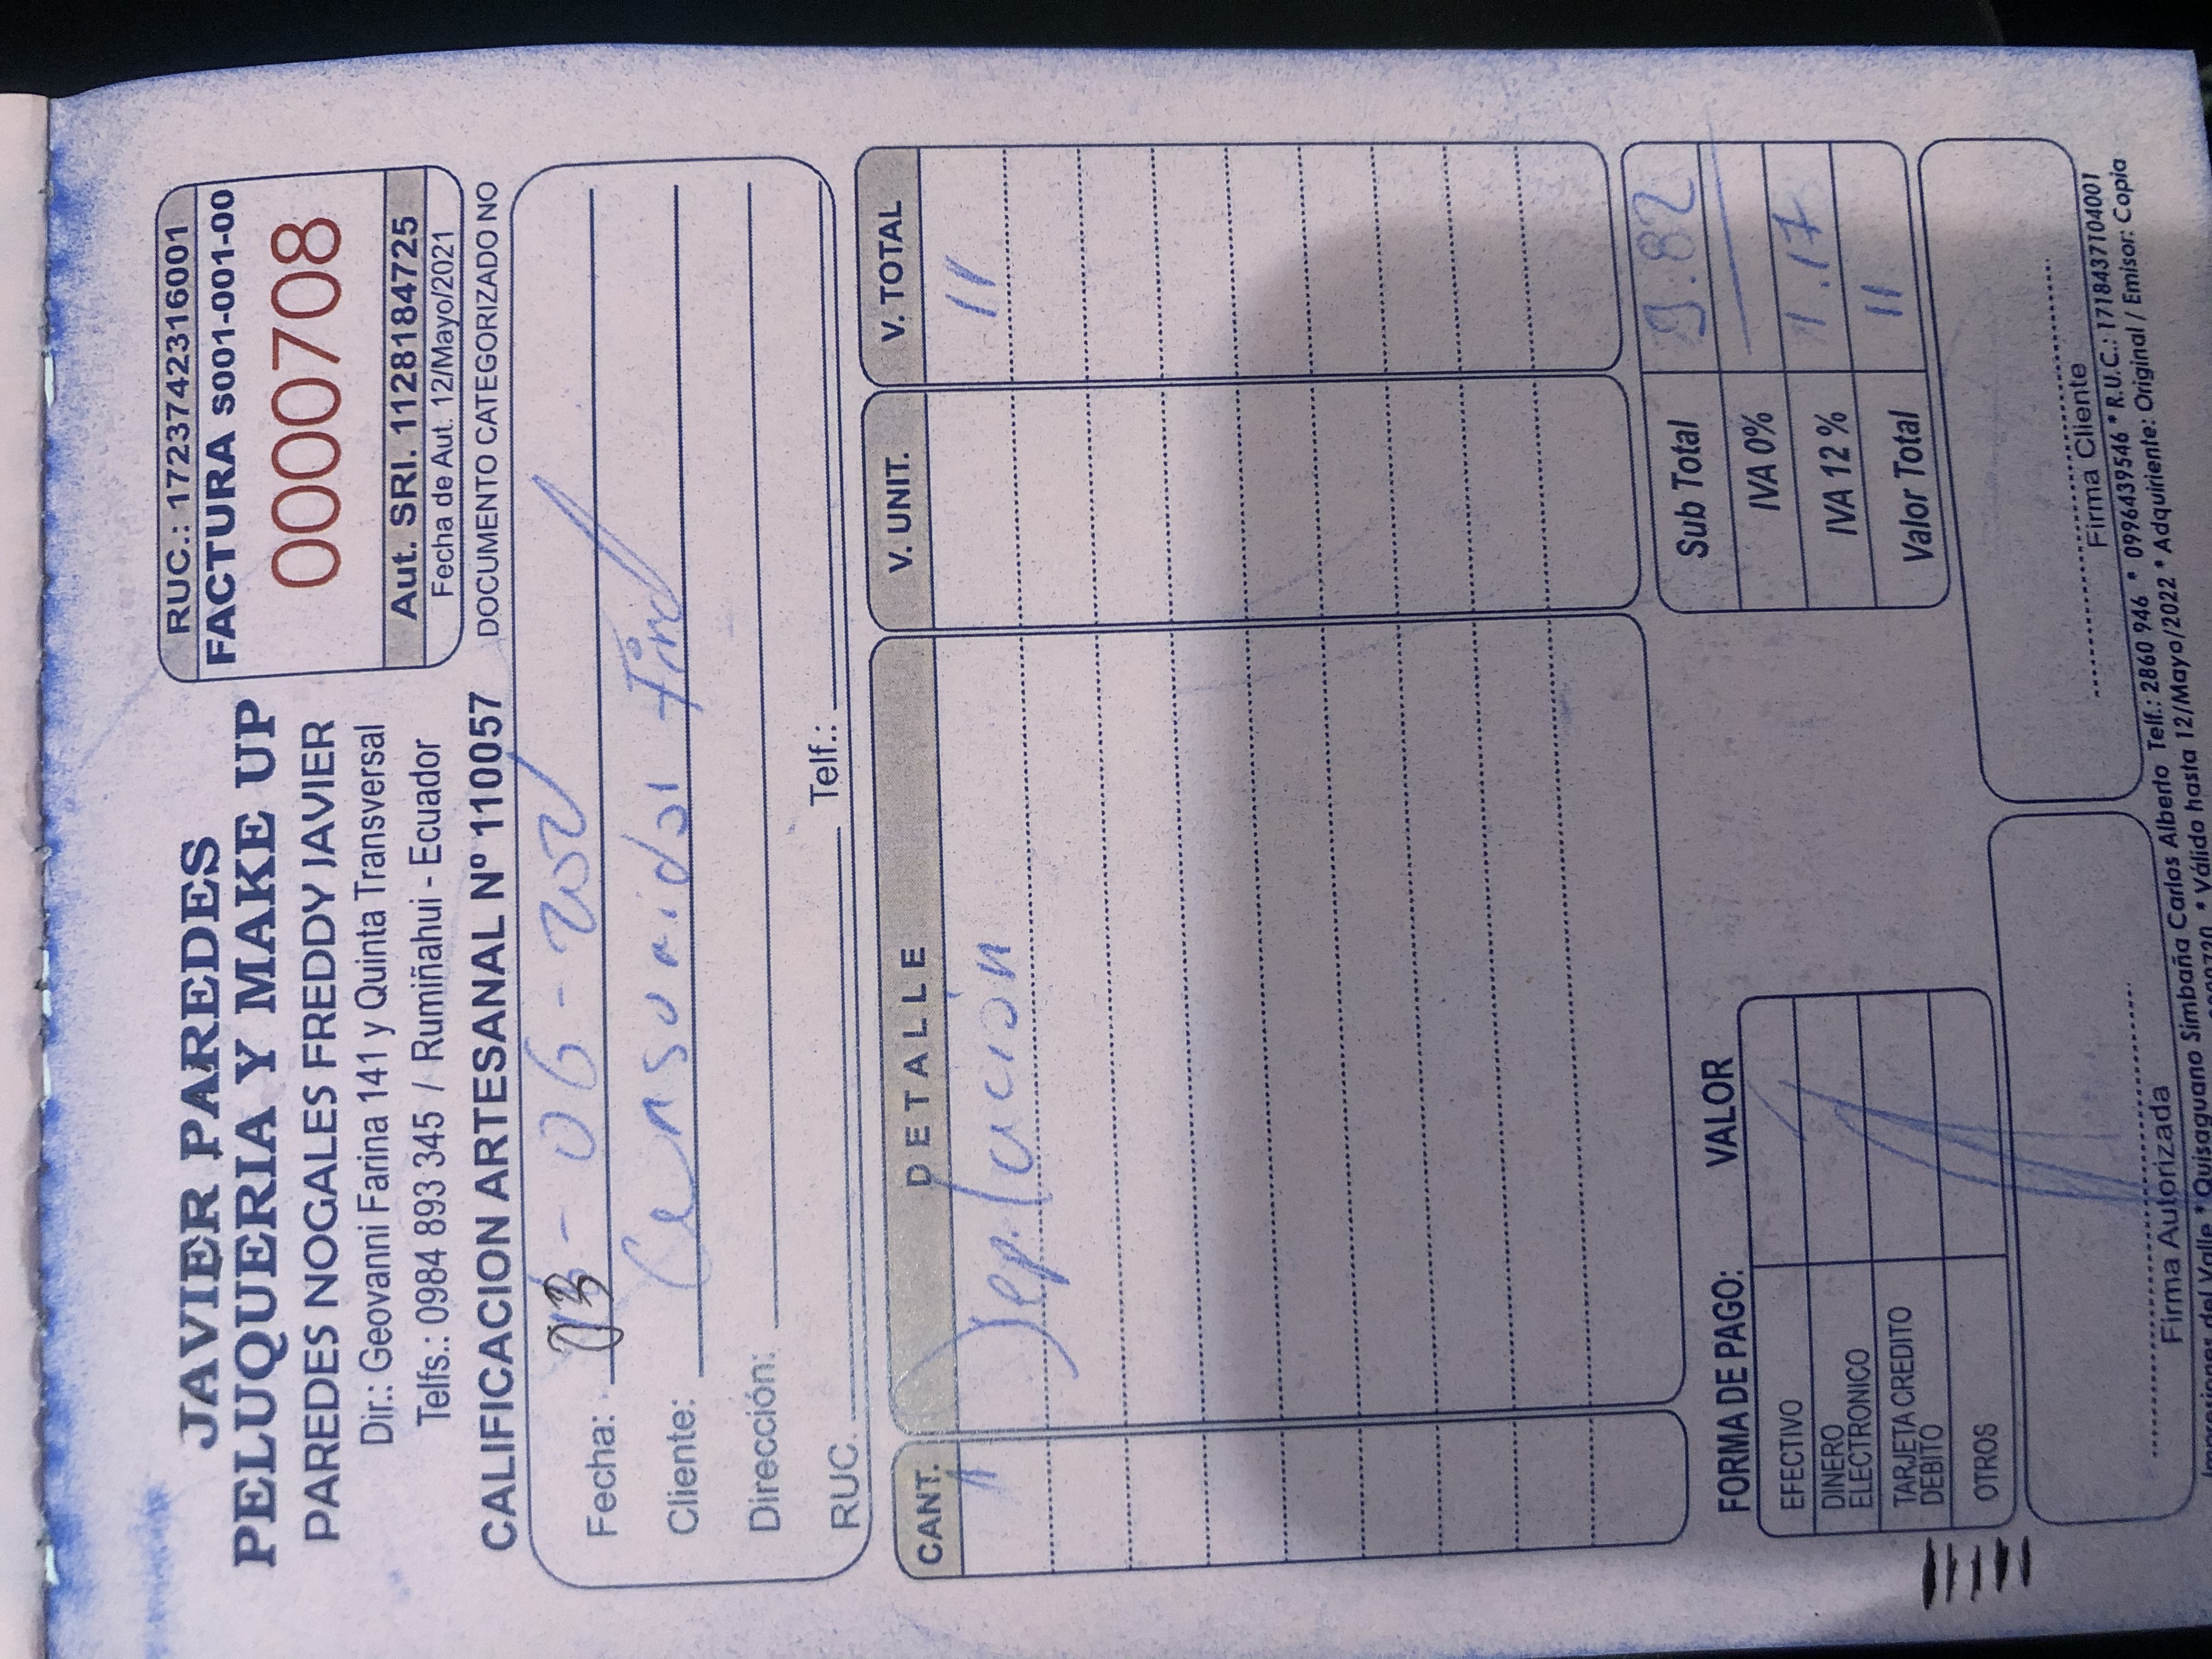 JAVIER PAREDES
PELUQUERIA Y MAKE UP
PAREDES NOGALES FREDDY JAVIER
Dir.: Geovanni Farina 141 y Quinta Transversal
Telfs.: 0984 893 345 / Rumiñahui - Ecuador
CALIFICACION ARTESANAL Nº 110057
RUC.: 1723742316001
FACTURA S001-001-00
0000708
Aut. SRI. 1128184725
Fecha de Aut. 12/Mayo/2021
DOCUMENTO CATEGORIZADO NO
Fecha: 03 - 06 - 2021
Cliente: Consumidor Final
Dirección:
RUC. Telf.:
CANT. DETALLE V. UNIT. V. TOTAL
1 Depilación 11
Sub Total 9.82
IVA 0%
IVA 12 % 1.17
Valor Total 11
FORMA DE PAGO: VALOR
EFECTIVO
DINERO
ELECTRONICO
TARJETA CREDITO
DEBITO
OTROS
Firma Autorizada
Firma Cliente
Impresiones del Valle * Quisaguano Simbaña Carlos Alberto Telf.: 2860 946 * 0996439546 * R.U.C.: 1718437104001
* Válido hasta 12/Mayo/2022 * Adquiriente: Original / Emisor: Copia